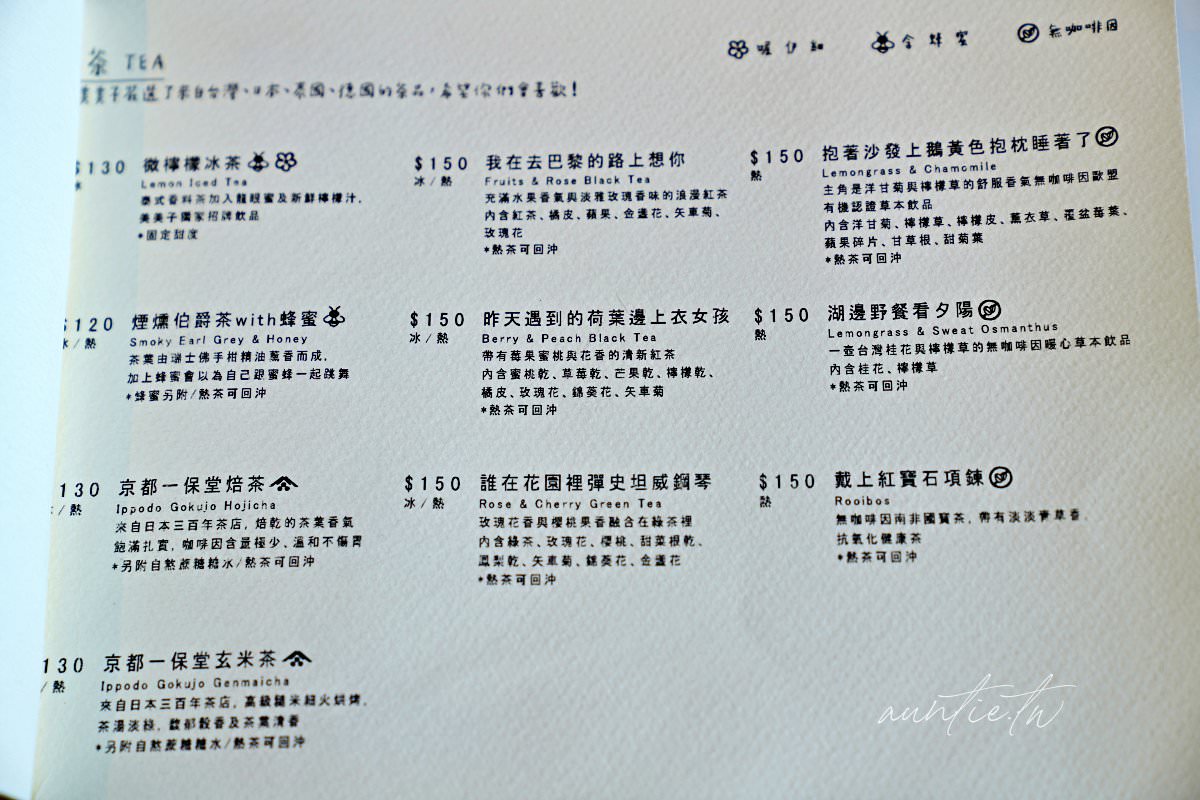 茶 TEA
美美子嚴選了來自台灣、日本、泰國、德國的茶品,希望你們會喜歡!
含蜂蜜
無咖啡因
$130 微檸檬冰茶
冰
Lemon Iced Tea
泰式香料茶加入龍眼蜜及新鮮檸檬汁,
美美子獨家招牌飲品
*固定甜度
$120 煙燻伯爵茶with蜂蜜
冰/熱
Smoky Earl Grey & Honey
茶葉由瑞士佛手柑精油蔥香而成,
加上蜂蜜會以為自己跟蜜蜂一起跳舞
*蜂蜜另附/熱茶可回沖
130 京都一保堂焙茶
/熱
Ippodo Gokujo Hojicha
來自日本三百年茶店, 焙乾的茶葉香氣
飽滿扎實, 咖啡因含量極少、溫和不傷胃
*另附自熬蔗糖糖水/熱茶可回沖
130 京都一保堂玄米茶
/熱
Ippodo Gokujo Genmaicha
來自日本三百年茶店, 高級糙米細火烘烤,
茶湯淡綠, 馥郁穀香及茶葉清香
*另附自熬蔗糖糖水/熱茶可回沖
$150 我在去巴黎的路上想你
冰/熱
Fruits & Rose Black Tea
充滿水果香氣與淡雅玫瑰香味的浪漫紅茶
內含紅茶、橘皮、蘋果、金盞花、矢車菊、
玫瑰花
*熱茶可回沖
$150 昨天遇到的荷葉邊上衣女孩
冰/熱
Berry & Peach Black Tea
帶有莓果蜜桃與花香的清新紅茶
內含蜜桃乾、草莓乾、芒果乾、檸檬乾、
橘皮、玫瑰花、錦葵花、矢車菊
*熱茶可回沖
$150 誰在花園裡彈史坦威鋼琴
冰/熱
Rose & Cherry Green Tea
玫瑰花香與櫻桃果香融合在綠茶裡
內含綠茶、玫瑰花、櫻桃、甜菜根乾、
鳳梨乾、矢車菊、錦葵花、金盞花
*熱茶可回沖
$150 抱著沙發上鵝黃色抱枕睡著了
熱
Lemongrass & Chamomile
主角是洋甘菊與檸檬草的舒服香氣無咖啡因歐盟
有機認證草本飲品
內含洋甘菊、檸檬草、檸檬皮、薰衣草、覆盆莓葉、
蘋果碎片、甘草根、甜菊葉
*熱茶可回沖
$150 湖邊野餐看夕陽
熱
Lemongrass & Sweat Osmanthus
一壺台灣桂花與檸檬草的無咖啡因暖心草本飲品
內含桂花、檸檬草
*熱茶可回沖
$150 戴上紅寶石項鍊
熱
Rooibos
無咖啡因南非國寶茶, 帶有淡淡青草香,
抗氧化健康茶
*熱茶可回沖
auntie.tw